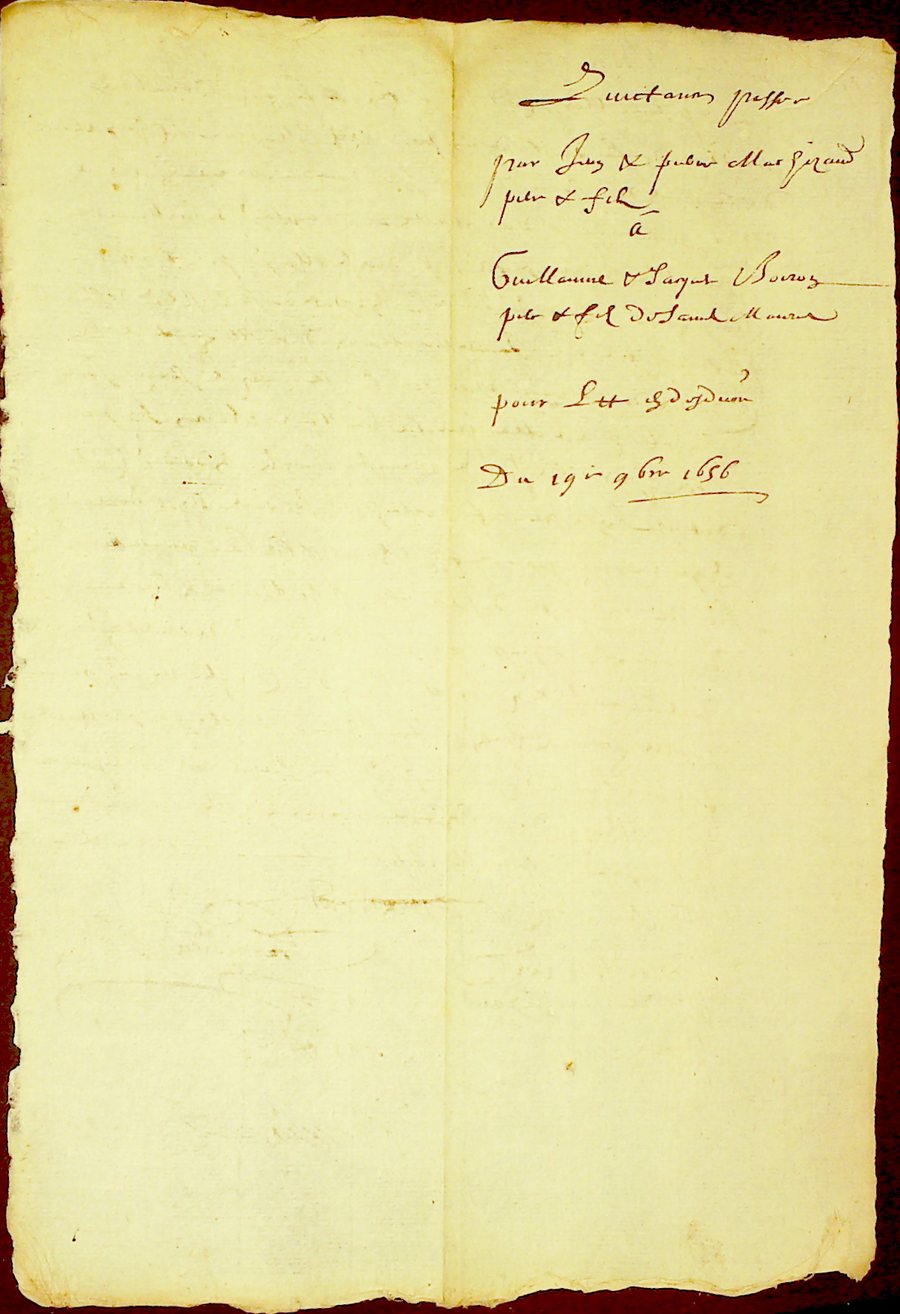 Quictance passee
par Jean & pierre Mathiraud
pere & fils
à
Guillaume & Jacques Boiron
pere & filz de Sainct Maurice
pour L tt
Du 19e 9bre 1656